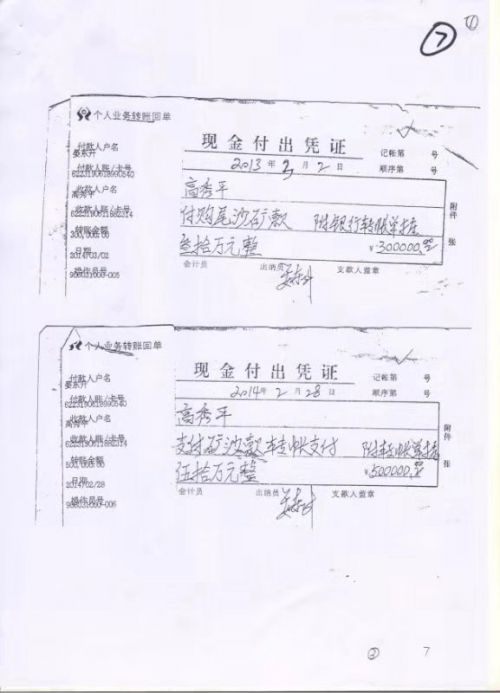 ⑦
①
个人业务转账回单
现金付出凭证
记帐第 号
2013年3月2日
顺序第 号
付款人户名
姜东升
付款人账/卡号
6223190618990540
收款人户名
高秀平
收款人账/卡号
转账金额
300,000.00
日期
2014/03/02
操作员号
高秀平
付购尾沙矿款 附银行转账单据
叁拾万元整 ¥300000.00
附件 张
会计员 出纳员 支款人盖章
个人业务转账回单
现金付出凭证
记帐第 号
2014年2月28日
顺序第 号
付款人户名
姜东升
付款人账/卡号
6223190618990540
收款人户名
高秀平
收款人账/卡号
转账金额
日期
2014/02/28
操作员号
高秀平
支付矿沙款 转帐支付 附转帐单据
伍拾万元整 ¥500000.00
附件 张
会计员 出纳员 支款人盖章
② 7